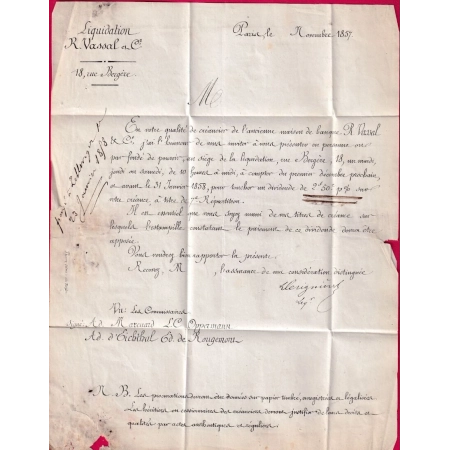 Liquidation
R. Vassal & Cie
18, rue Bergère.
Paris, le Novembre 1857
M
En votre qualité de créancier de l'ancienne maison de banque R. Vassal
& Cie, j'ai l'honneur de vous inviter à vous présenter en personne ou
par fondé de pouvoir, au siège de la liquidation, rue Bergère, 18, un mardi,
jeudi ou samedi, de 10 heures à midi, à compter du premier décembre prochain,
et avant le 31 Janvier 1858, pour toucher un dividende de 2f 50c p % sur
votre créance à titre de 7e Répartition.
Il est essentiel que vous soyez muni de vos titres de créance sur
lesquels l'estampille constatant le paiement de ce dividende devra être
apposée.
Vous voudrez bien rapporter la présente.
Recevez, M l'assurance de ma considération distinguée
Vu: Les Commissaires
Signé: Ad. Marcuard L.C. Oppermann
Ad. d'Eichthal Ed. de Rougemont
N. B. Les procurations devront être données sur papier timbré, enregistrées et légalisées
Les héritiers ou cessionnaires des créanciers devront justifier de leurs droits et
qualités par actes authentiques et réguliers
23 janvier 1858